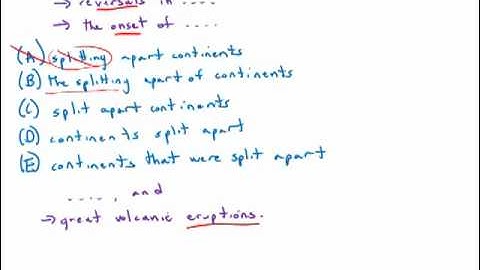 → reversals in ....
→ the onset of ....
(A) splitting apart continents
(B) the splitting apart of continents
(C) split apart continents
(D) continents split apart
(E) continents that were split apart
...., and
→ great volcanic eruptions.